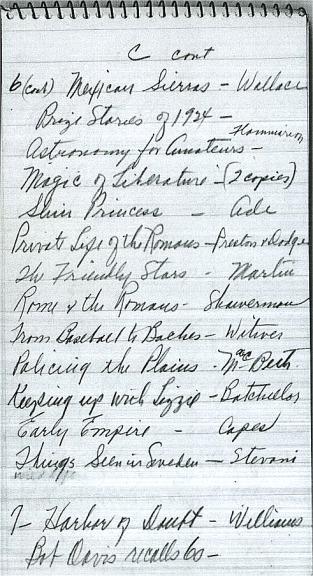 C cont
6 (cont) Mexican Sierras - Wallace
Prize Stories of 1924 -
Flammarion
Astronomy for Amateurs -
Magic of Literature - (2 copies)
Slim Princess - Ade
Private Life of the Romans - Preston & Dodge
The Friendly Stars - Martin
Rome & the Romans - Showerman
From Baseball to Boches - Witwer
Policing the Plains - Mac Beth
Keeping up with Lizzie - Batchellor
Early Empire - Capes
Things Seen in Sweden - Stevani
7 - Harbor of Doubt - Williams
Bob Davis recalls 60 -